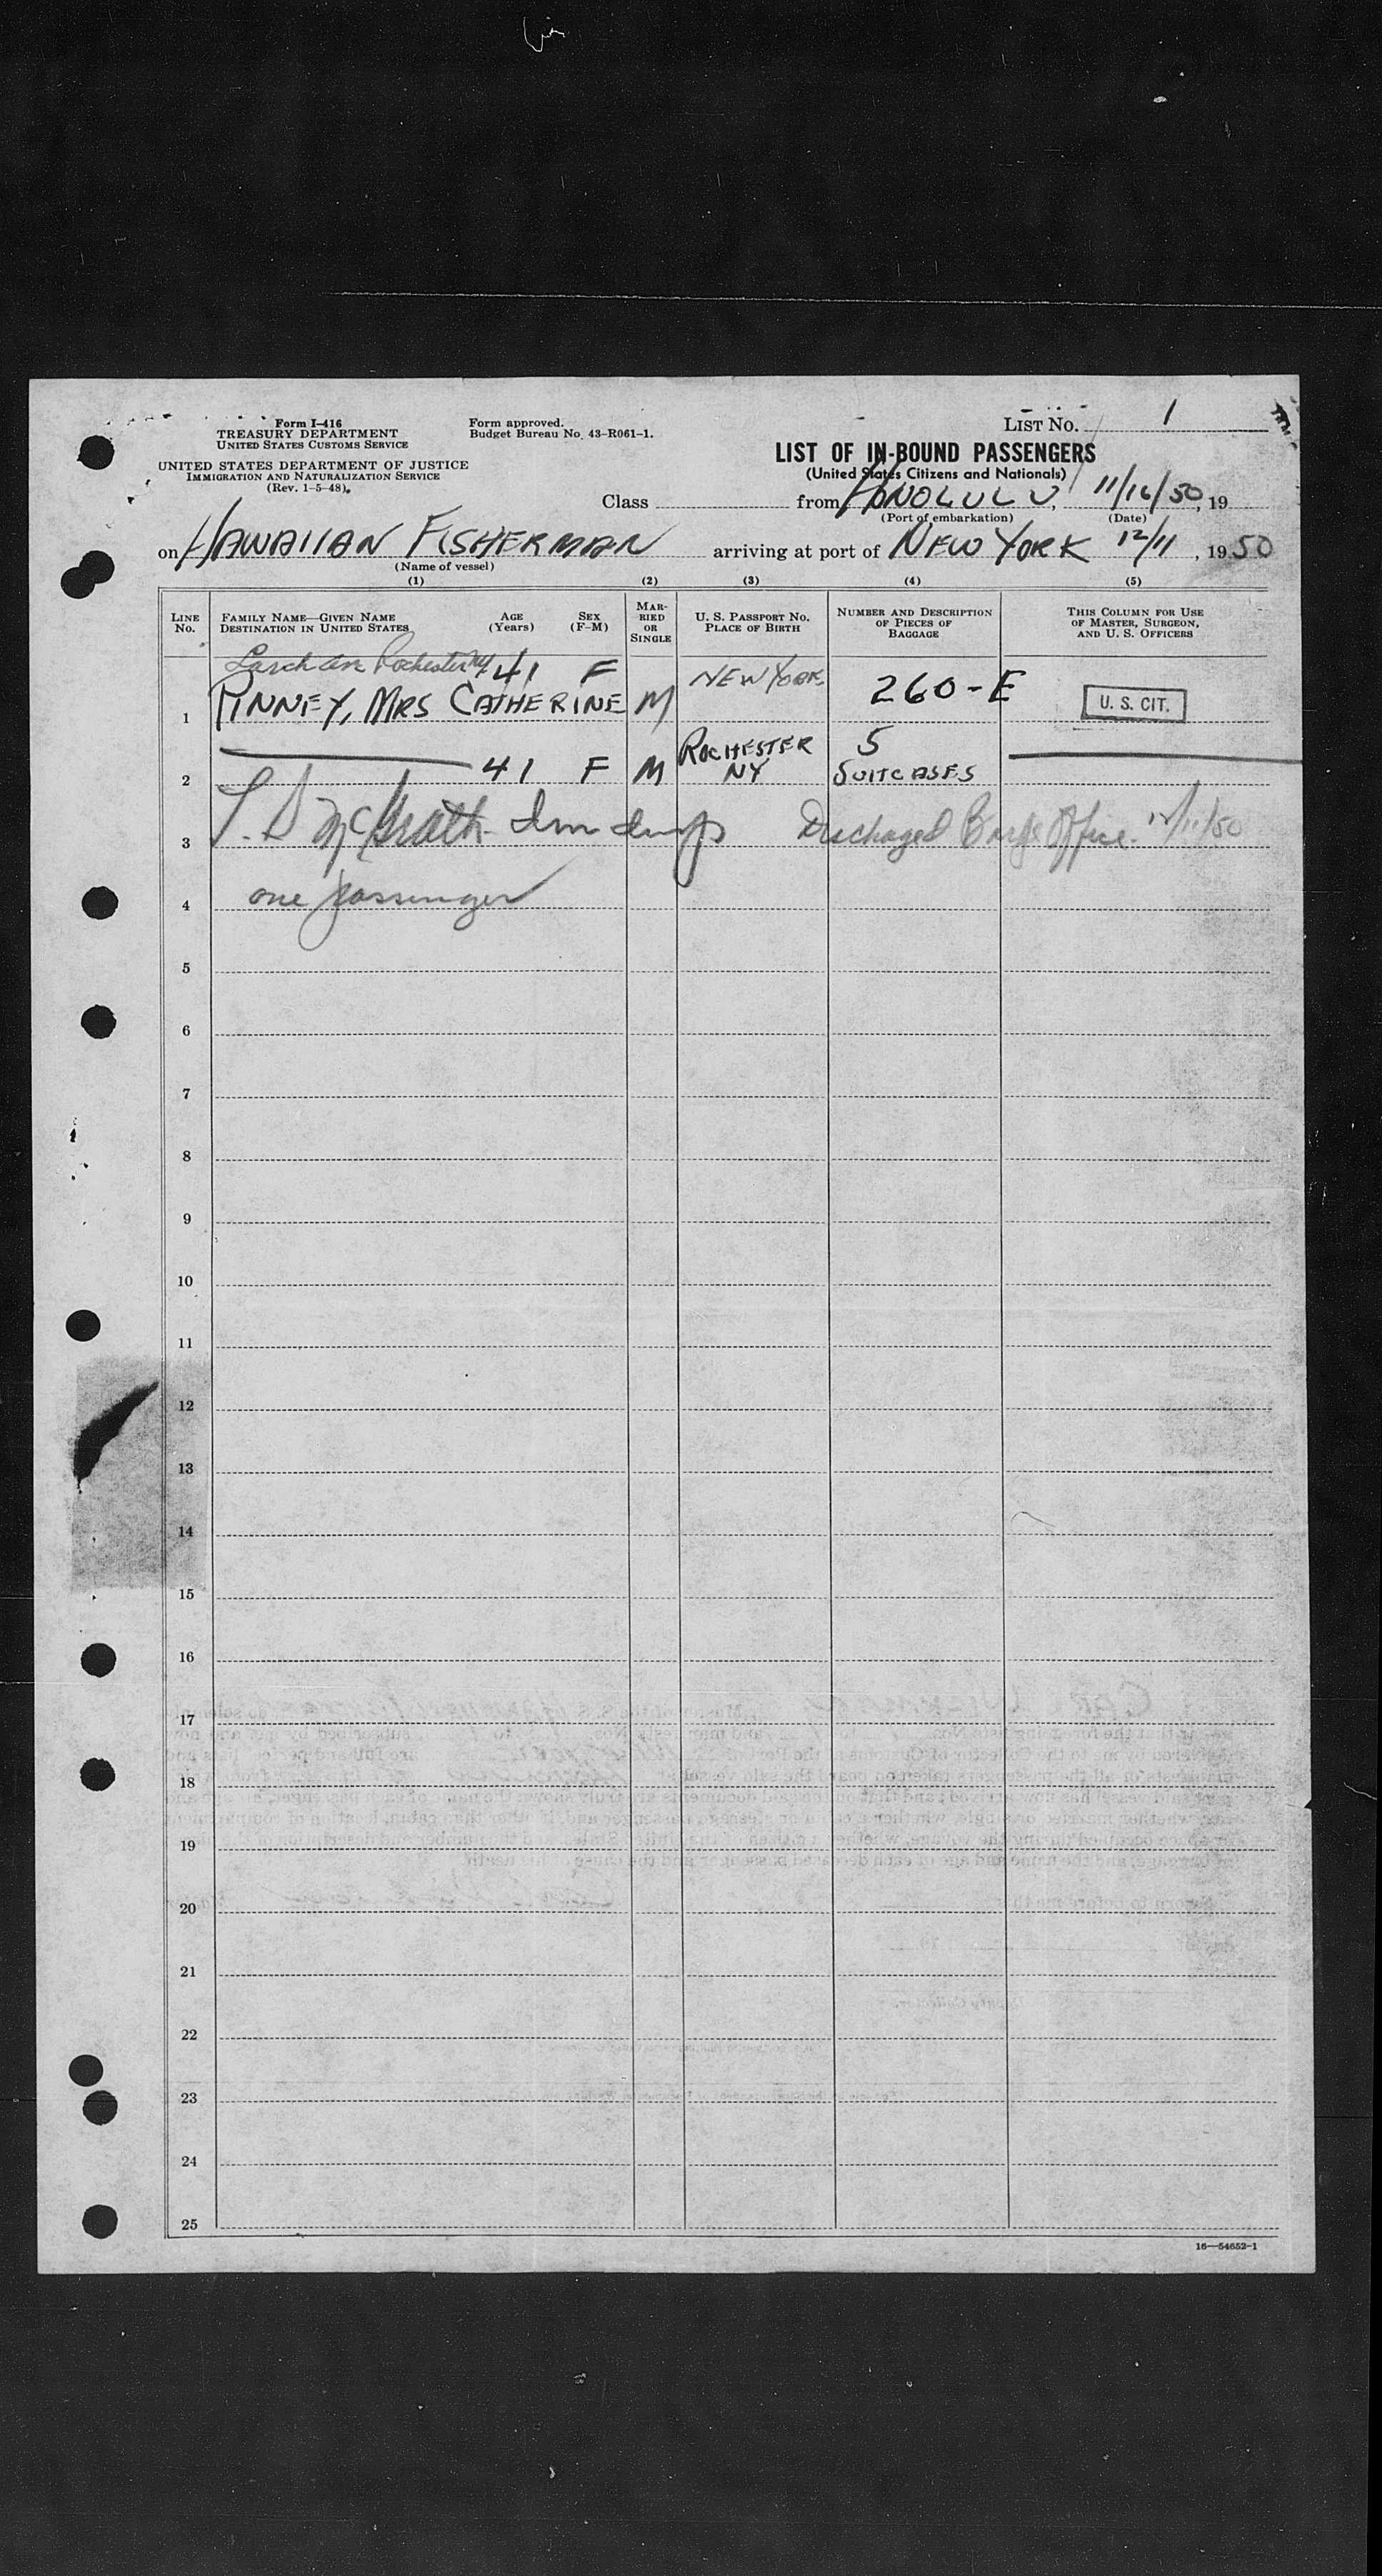 Form I-416
TREASURY DEPARTMENT
UNITED STATES CUSTOMS SERVICE
UNITED STATES DEPARTMENT OF JUSTICE
IMMIGRATION AND NATURALIZATION SERVICE
(Rev. 1-5-48)
Form approved.
Budget Bureau No. 43-R061-1.
LIST NO. 1
LIST OF IN-BOUND PASSENGERS
(United States Citizens and Nationals)
Class from HONOLULU, 11/16/50, 19
(Port of embarkation) (Date)
on HAWAIIAN FISHERMAN arriving at port of NEW YORK 12/11, 1950
(Name of vessel)
(1) (2) (3) (4) (5)
LINE NO. FAMILY NAME—GIVEN NAME DESTINATION IN UNITED STATES AGE (Years) SEX (F-M) MARRIED OR SINGLE U. S. PASSPORT NO. PLACE OF BIRTH NUMBER AND DESCRIPTION OF PIECES OF BAGGAGE THIS COLUMN FOR USE OF MASTER, SURGEON, AND U. S. OFFICERS
Rochester NY 41 F NEW YORK
1 PINNEY, MRS CATHERINE M 260-E U. S. CIT.
2 41 F M ROCHESTER NY 5 SUITCASES
3 McGrath Discharged Barge Office 12/11/50
4 one passenger
5
6
7
8
9
10
11
12
13
14
15
16
17
18
19
20
21
22
23
24
25
16—54652-1